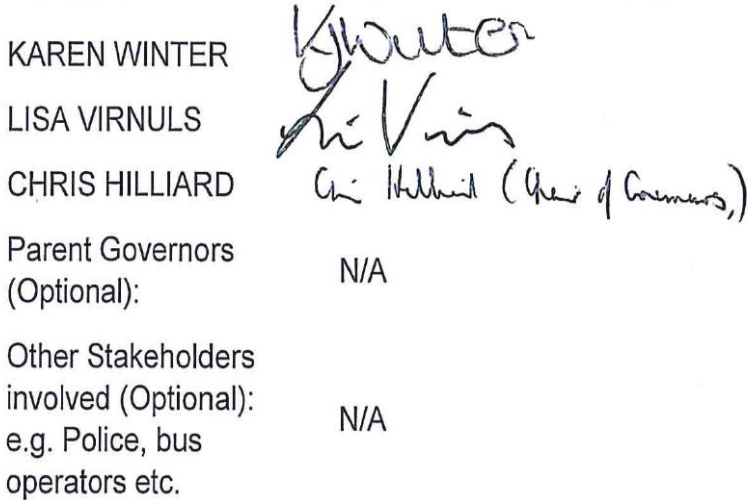 KAREN WINTER KJWinter
LISA VIRNULS
CHRIS HILLIARD Chris Hilliard (Chair of Governors,)
Parent Governors
(Optional): N/A
Other Stakeholders
involved (Optional):
e.g. Police, bus N/A
operators etc.